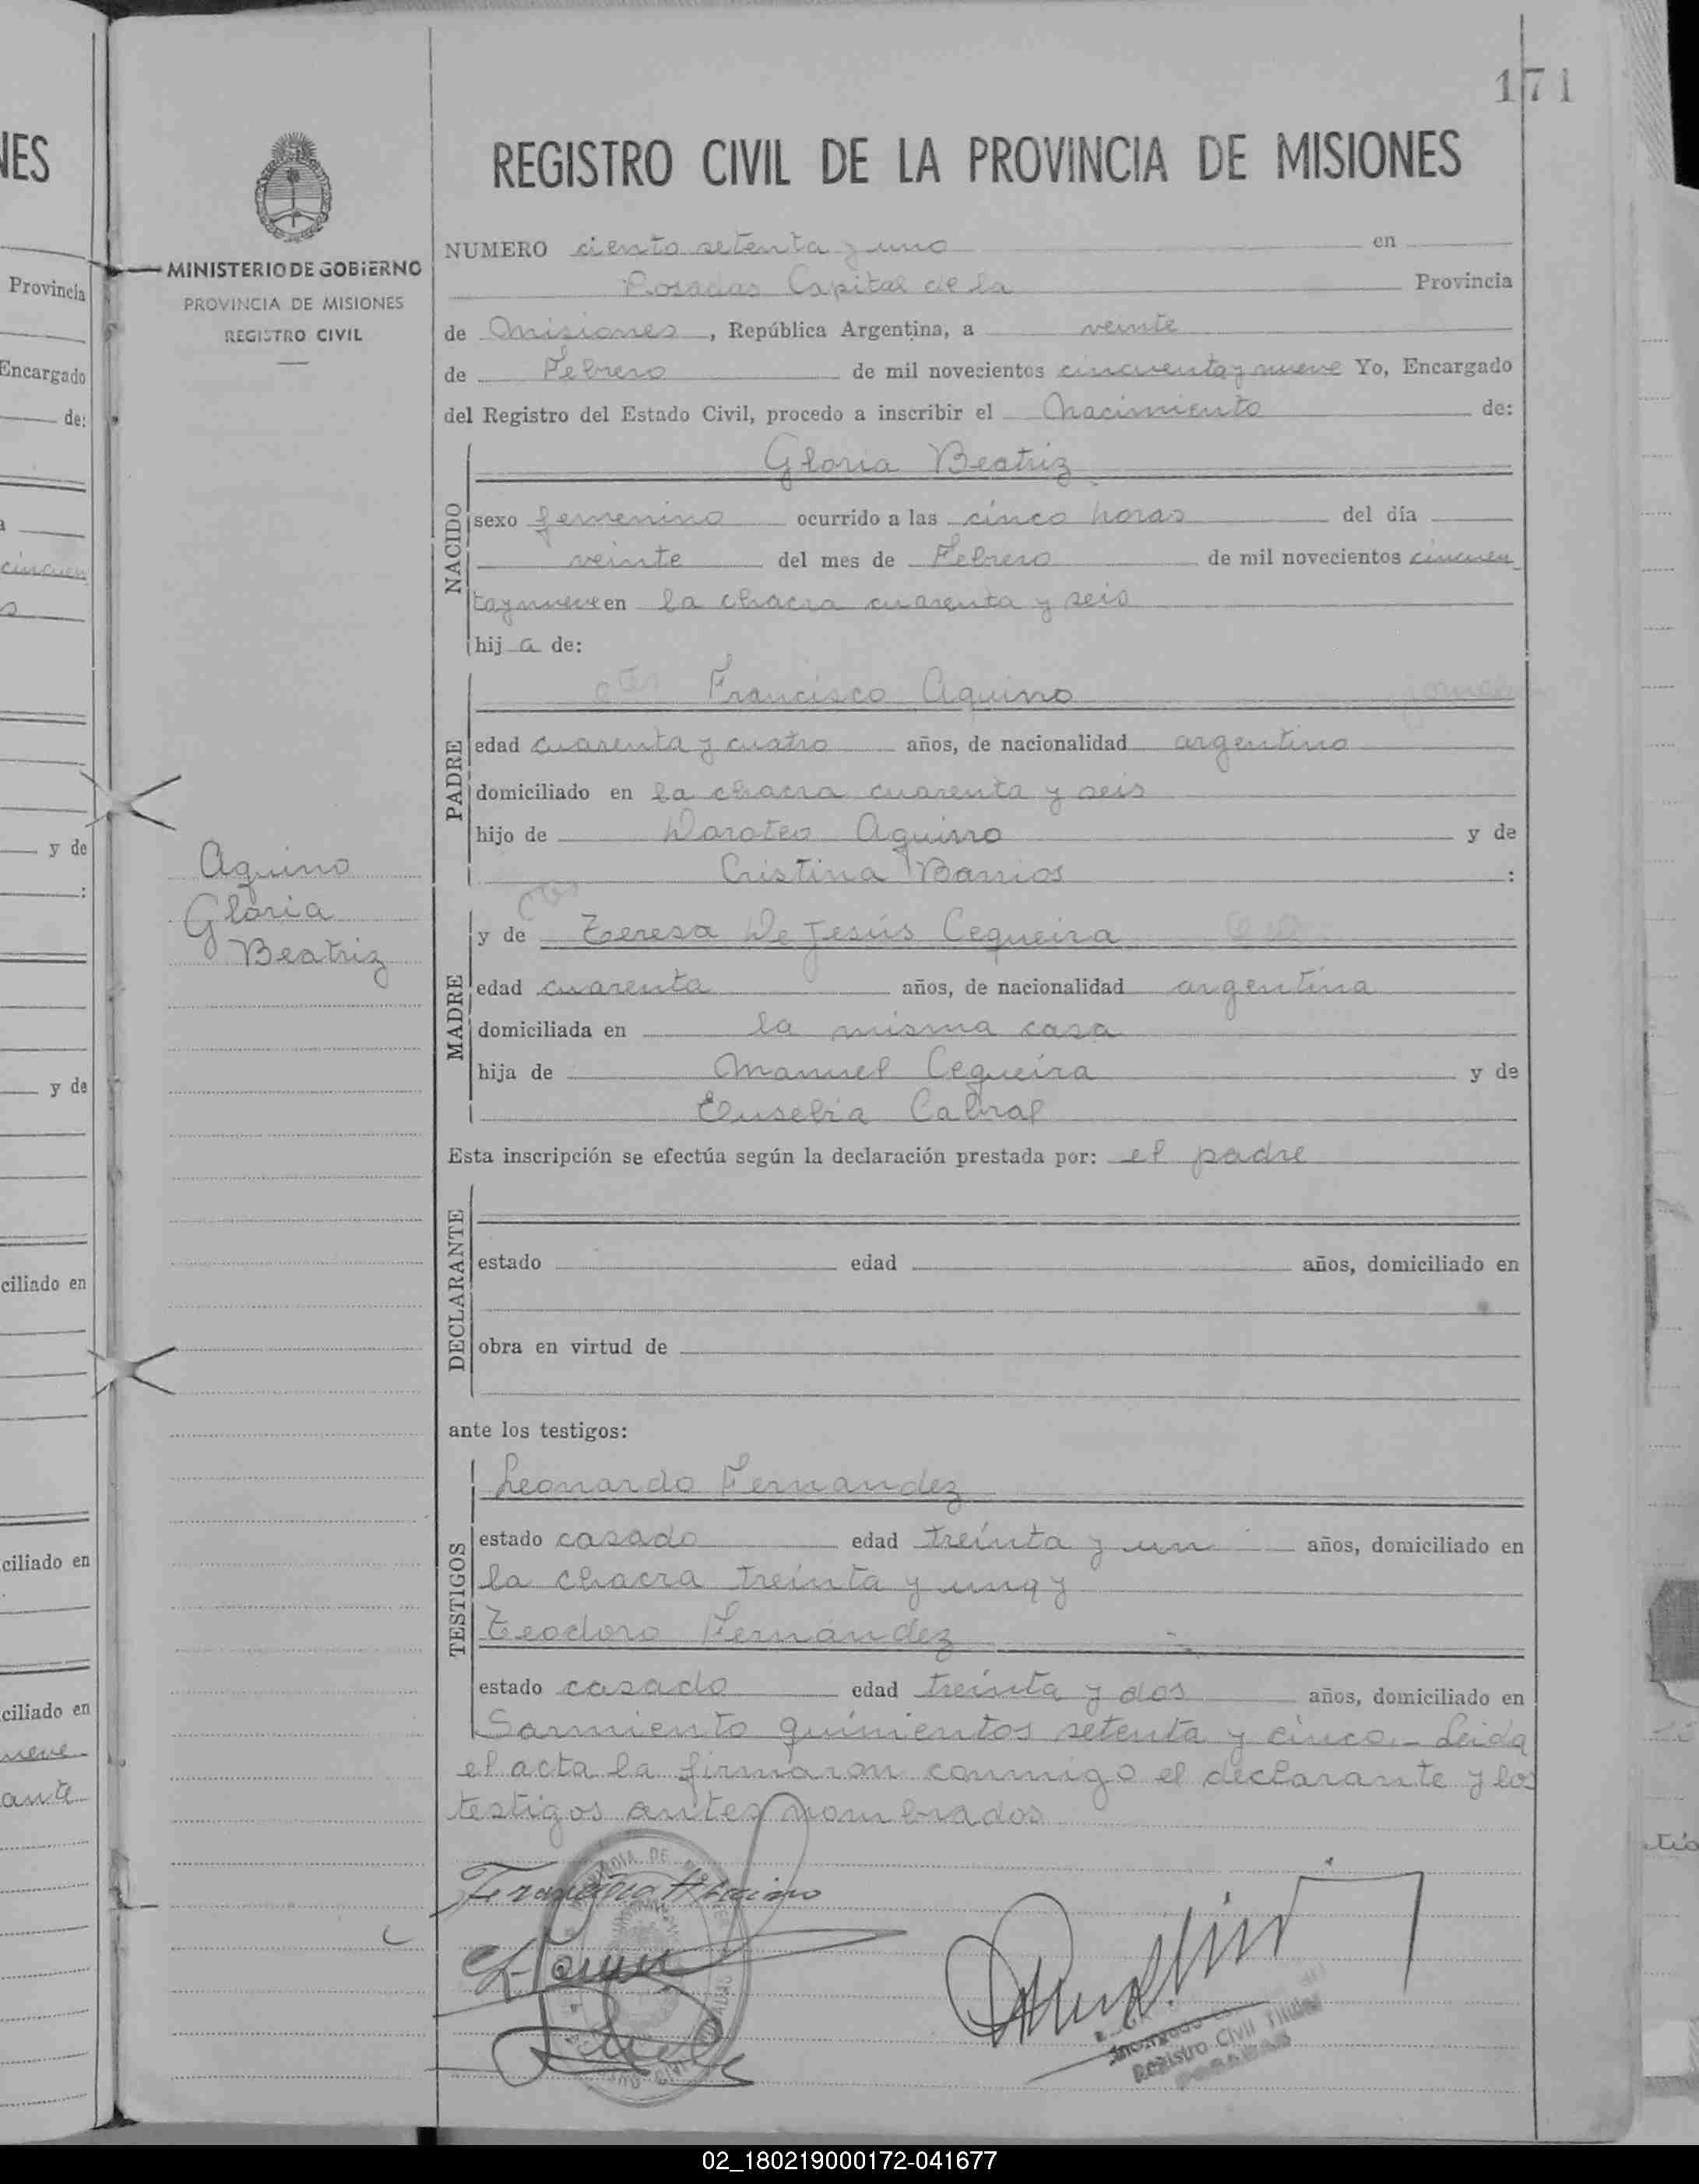 171
REGISTRO CIVIL DE LA PROVINCIA DE MISIONES
MINISTERIO DE GOBIERNO
PROVINCIA DE MISIONES
REGISTRO CIVIL
NUMERO ciento setenta y uno en
Posadas Capital de la Provincia
de Misiones, República Argentina, a veinte
de Febrero de mil novecientos cincuenta y nueve Yo, Encargado
del Registro del Estado Civil, procedo a inscribir el Nacimiento de:
NACIDO
Gloria Beatriz
sexo femenino ocurrido a las cinco horas del día
veinte del mes de Febrero de mil novecientos cincuen
ta y nueve en la chacra cuarenta y seis
hija de:
PADRE
Francisco Aquino
edad cuarenta y cuatro años, de nacionalidad argentino
domiciliado en la chacra cuarenta y seis
hijo de Doroteo Aquino y de
Cristina Barrios :
Aquino
Gloria
Beatriz
MADRE
y de Teresa De Jesús Cequeira
edad cuarenta años, de nacionalidad argentina
domiciliada en la misma casa
hija de Manuel Cequeira y de
Eusebia Cabral
Esta inscripción se efectúa según la declaración prestada por: el padre
DECLARANTE
estado edad años, domiciliado en
obra en virtud de
ante los testigos:
TESTIGOS
Leonardo Fernandez
estado casado edad treinta y un años, domiciliado en
la chacra treinta y una y
Teodoro Fernández
estado casado edad treinta y dos años, domiciliado en
Sarmiento quinientos setenta y cinco.- Leida
el acta la firmaron conmigo el declarante y los
testigos antes nombrados
Francisco Aquino
Encargado
Registro Civil Titular
POSADAS
NES
Provincia
Encargado
de:
cincuen
y de
:
y de
ciliado en
ciliado en
ciliado en
nueve
ante
02_180219000172-041677